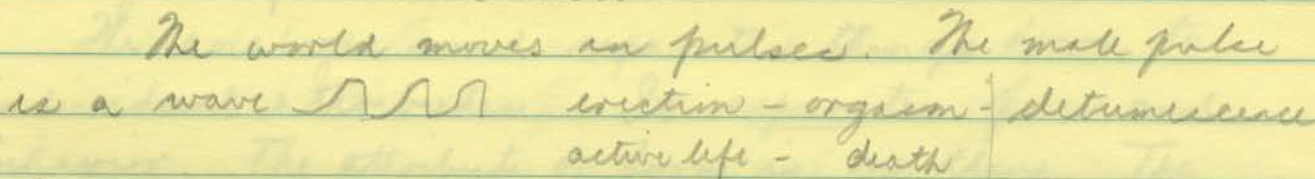 The world moves in pulses. The male pulse
is a wave erection - orgasm - detumescence
active life - death